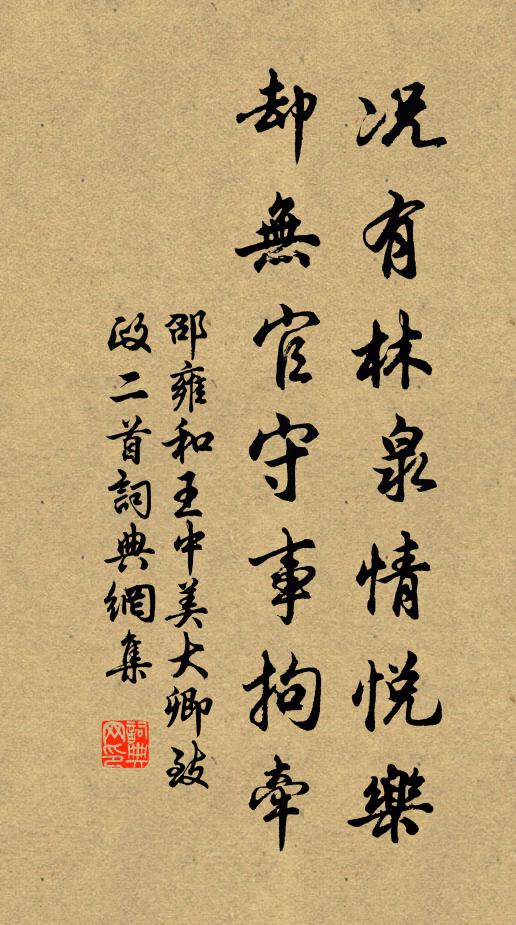 况有林泉情悅樂
却無官守事拘牽
邵雍和王中美大卿致
政二首詞典網集
詞典
网印